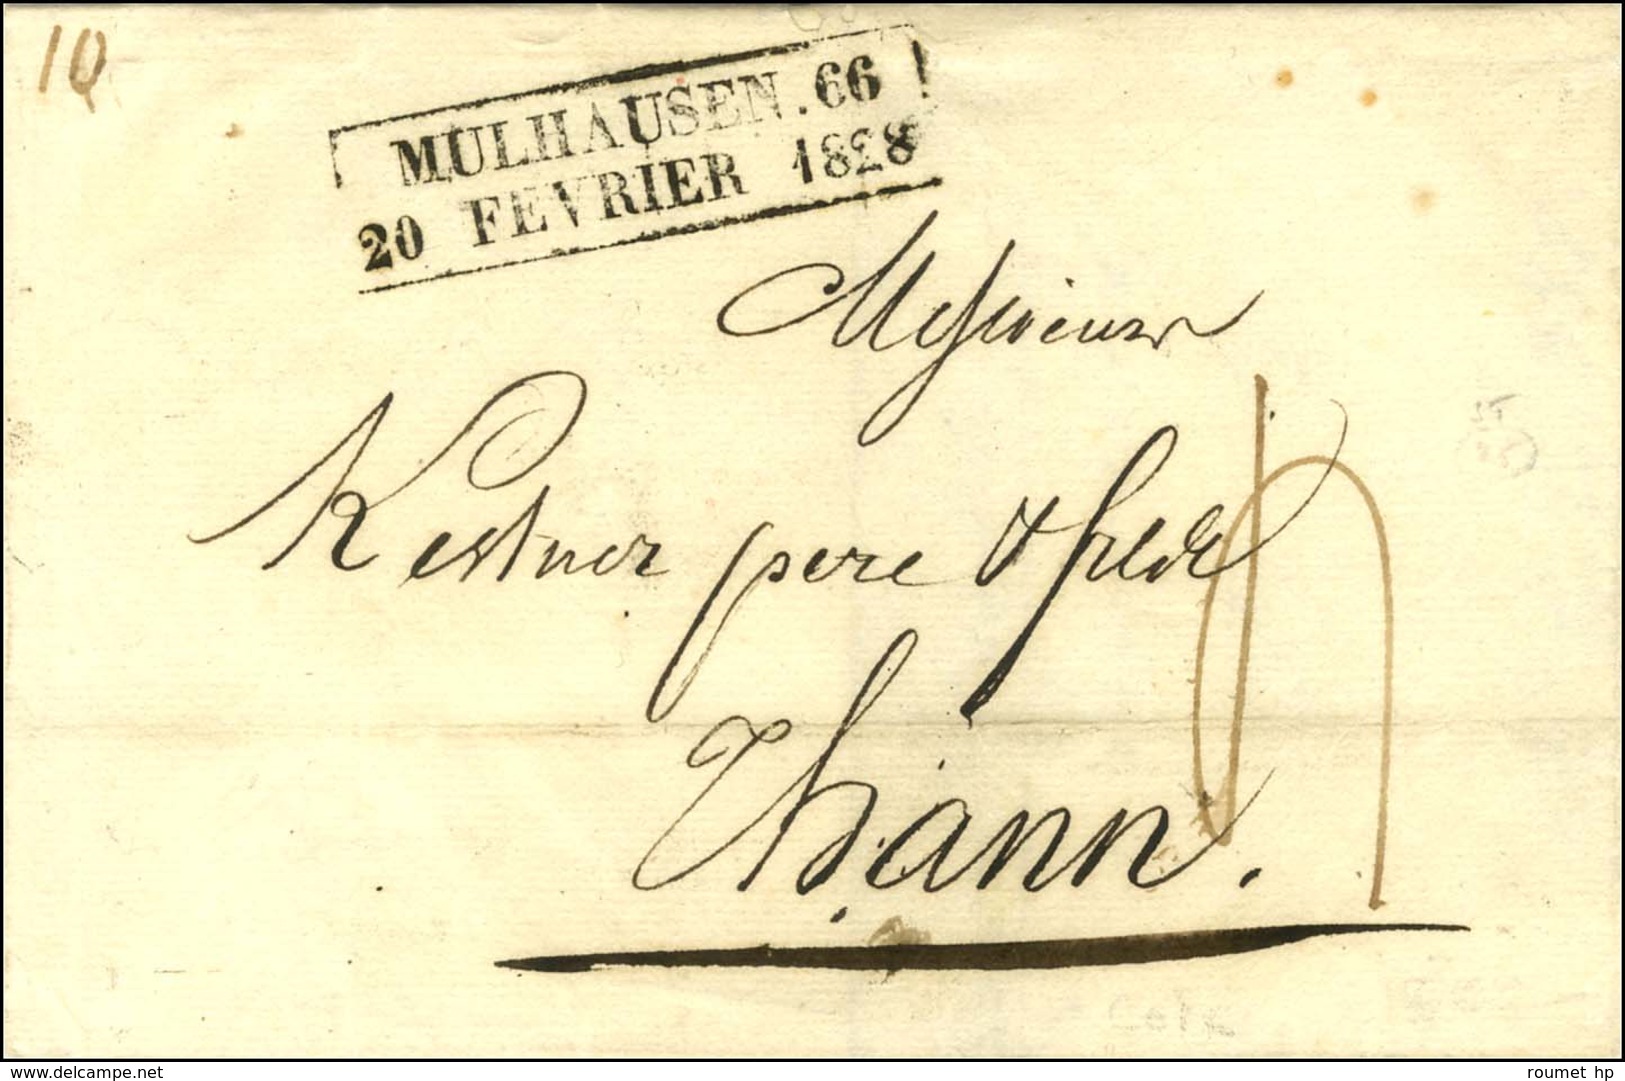 10
MULHAUSEN. 66
20 FEVRIER 1828
Messieurs
Kestner pere & fils
Thann.
www.delcampe.net
roumet hp